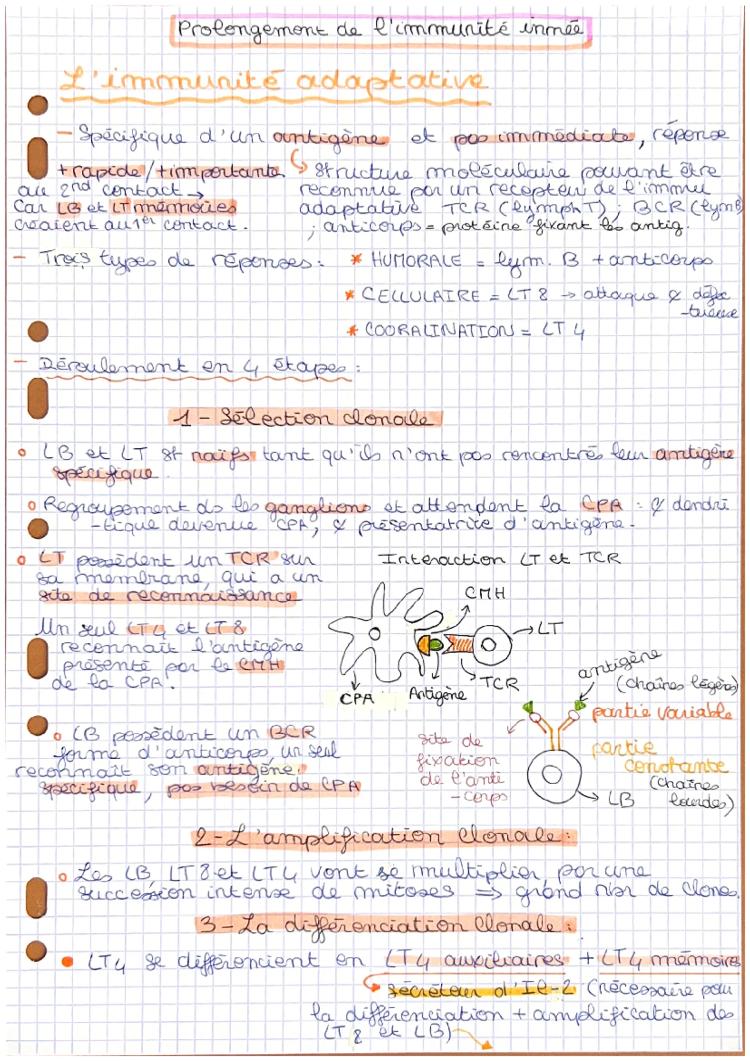 Prolongement de l'immunité innée
L'immunité adaptative
- Spécifique d'un antigène et pas immédiate, réponse
+ rapide / + importante
au 2nd contact →
Car LB et LT mémoires
créaient au 1er contact.
↳ Structure moléculaire pouvant être
reconnue par un recepteur de l'immu
adaptative TCR (lymph T) ; BCR (lym B)
; anticorps = protéine fixant les antig.
- Trois types de réponses : * HUMORALE = lym. B + anticorps
* CELLULAIRE = LT 8 → attaque & défec
-tueuse
* COORALINATION = LT 4
- Déroulement en 4 étapes :
1 - Sélection clonale
LB et LT st naïfs tant qu'ils n'ont pas rencontrés leur antigène
spécifique.
Regroupement ds les ganglions et attendent la CPA : & dendri
-tique devenue CPA, & présentatrice d'antigène.
LT possèdent un TCR sur
sa membrane, qui a un
site de reconnaissance
Un seul LT4 et LT8
reconnait l'antigène
présenté par le CMH
de la CPA.
Interaction LT et TCR
CMH
LT
TCR
Antigène
CPA
LB possèdent un BCR
forme d'anticorps, un seul
reconnait son antigène
spécifique, pas besoin de CPA
antigène
(chaînes légères)
partie variable
site de
fixation
de l'anti
-corps
partie
constante
(chaînes
lourdes)
LB
2 - L'amplification clonale :
Les LB, LT8 et LT4 vont se multiplier par une
succession intense de mitoses ⇒ grand nbr de clones.
3 - La différenciation clonale :
LT4 se différencient en LT4 auxiliaires + LT4 mémoires
↳ sécréteur d'Il-2 (nécessaire pour
la différenciation + amplification des
LT8 et LB)